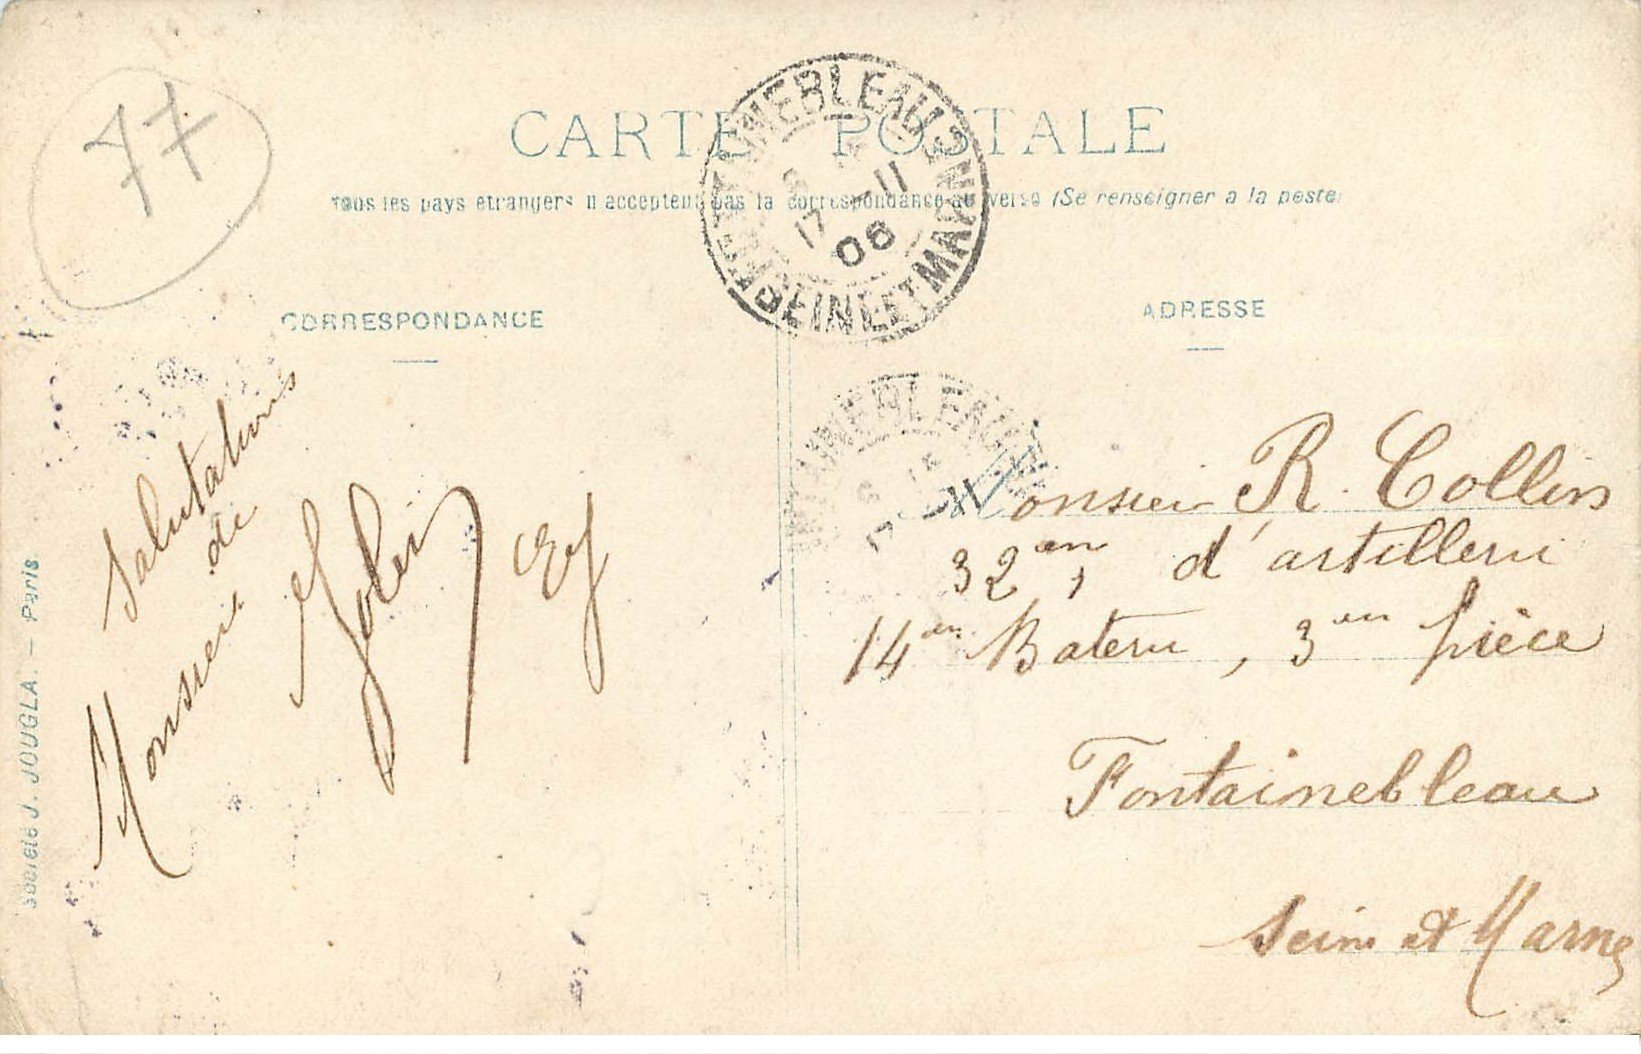 77
CARTE POSTALE
Tous les pays étrangers n'acceptent pas la correspondance au verso (Se renseigner à la poste)
FONTAINEBLEAU SEINE ET MARNE
17 -11
06
CORRESPONDANCE
ADRESSE
Salutations
de
Monsieur
Monsieur R. Collin
32em d'artillerie
14em Baterie, 3em pièce
Fontainebleau
Seine et Marne
AINEBLEAU
-11
Société J. JOUGLA. - Paris